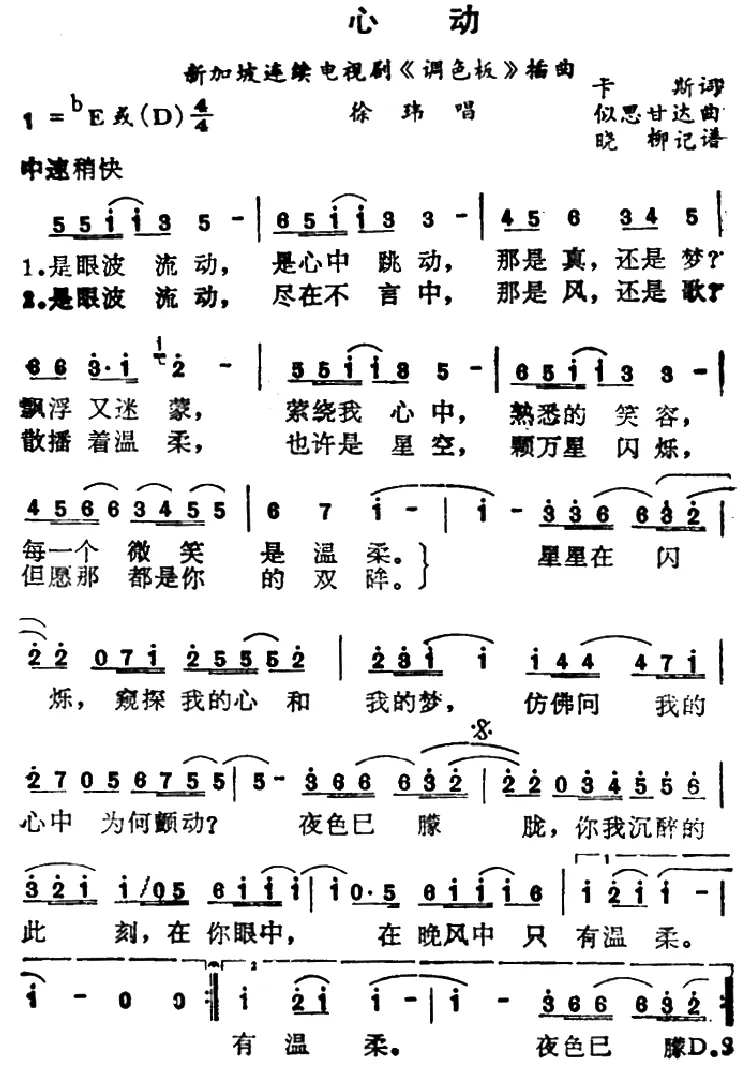 心 动
新加坡连续电视剧《调色板》插曲
卡 斯词
1=♭E或(D) 4/4 徐 玮 唱 似思甘达曲
晓 柳记谱
中速稍快
5 5 i i 3 5 - | 6 5 i i 3 3 - | 4 5 6 3 4 5 |
1.是眼波 流动， 是心中 跳动， 那是真，还是梦？
2.是眼波 流动， 尽在不 言中， 那是风，还是歌？
6 6 3·1 2 - | 5 5 i i 3 5 - | 6 5 i i 3 3 - |
飘浮 又迷 蒙， 萦绕我 心中， 熟悉的 笑容，
散播 着温 柔， 也许是 星空， 颗万星 闪烁，
4 5 6 6 3 4 5 5 | 6 7 i - | i - 3 3 6 6 3 2 |
每一个 微笑 是温柔。 星星在 闪
但愿那 都是你 的双眸。
2 2 0 7 i 2 5 5 5 2 | 2 3 i i i 4 4 4 7 i |
烁，窥探 我的心 和 我的梦， 仿佛问 我的
2 7 0 5 6 7 5 5 | 5 - 3 6 6 6 3 2 | 2 2 0 3 4 5 5 6 |
心中 为何颤动？ 夜色已 朦 胧，你我沉醉的
3 2 i i/0 5 6 i i i | i 0·5 6 i i i 6 | i 2 i i - |
此 刻，在你眼中， 在晚风中 只 有温 柔。
i - 0 0 :| i 2 i i - | i - 3 6 6 6 3 2 :|
有 温 柔。 夜色已 朦D.S